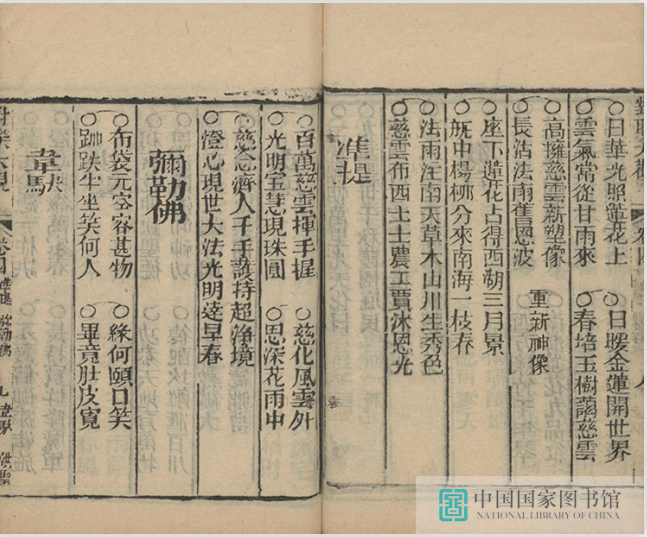 對聯大觀 卷四 八
○日華光照蓮花上 ○日暖金蓮開世界
○雲氣常從甘雨來 ○春培玉樹藹慈雲
○高擁慈雲新塑像
○長沾法雨舊恩波 重新神像
○座下蓮花占得西湖三月景
○瓶中楊柳分來南海一枝春
○法雨注南天草木山川生秀色
○慈雲布西土士農工賈沐恩光
准提
○百萬慈雲揮手握 ○慈化風雲外
○光明宝慧現珠圓 ○恩深花雨中
○慈念濟人千手護持超淨境
○燈心現世大法光明達早春
彌勒佛
○布袋元容容甚物 ○緣何頤口笑
○跏趺半坐笑何人 ○畢竟肚皮寬
韋馱
對聯大觀 卷四 准提 彌勒佛 九
中国国家图书馆
NATIONAL LIBRARY OF CHINA